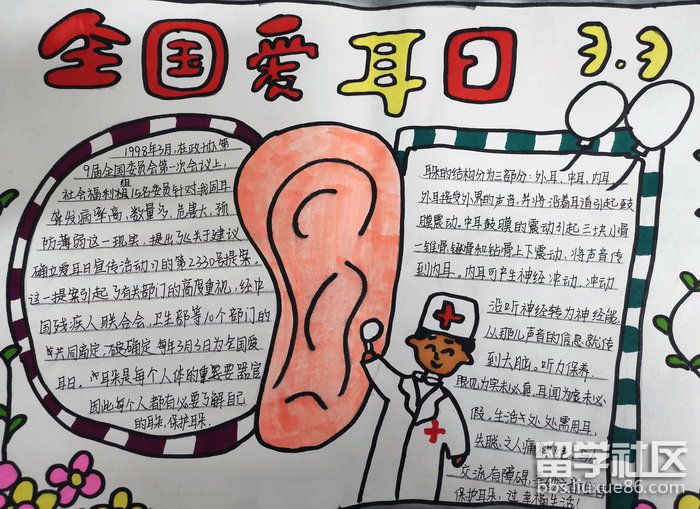 全国爱耳日 3.3
1998年3月,在政协第
9届全国委员会第一次会议上,
社会福利组15名委员针对我国耳
聋发病率高、数量多、危害大、预
防薄弱这一现实,提出了《关于建议
确立爱耳日宣传活动》的第2330号提案。
这一提案引起了有关部门的高度重视,经中
国残疾人联合会、卫生部等10个部门的
共同商定,确定每年3月3日为全国爱
耳日。耳朵是每个人体的重要器官
因此每个人都有必要了解自己
的耳朵,保护耳朵。
耳朵的结构分为三部分:外耳、中耳、内耳
外耳接受外界的声音,并将沿着耳道引起鼓
膜震动。中耳鼓膜的震动引起三块小骨
—锥骨、镫骨和砧骨上下震动,将声音传
到内耳。内耳可产生神经冲动、冲动
沿听神经转为神经能,
从那儿声音的信息就传
到大脑。听力保养
眼见为实未必真,耳闻为虚未必
假,生活处处需用耳,
失聪之人痛
交流有障碍,
保护耳朵,过幸福生活!
留学社区
bbs.liuxue86.com